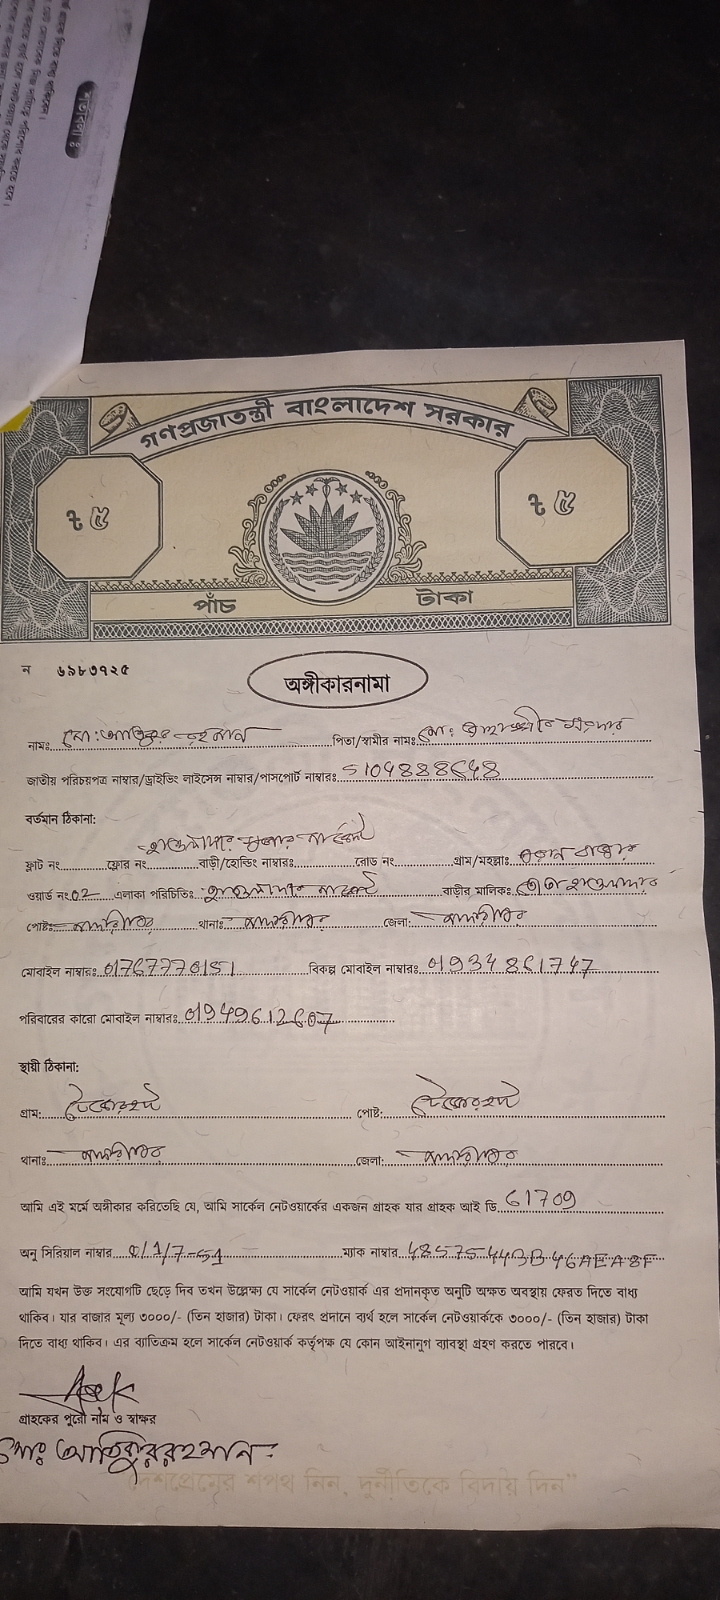 শর্তাবলী ঃ
গণপ্রজাতন্ত্রী বাংলাদেশ সরকার
৳ ৫ ৳ ৫
পাঁচ টাকা
ন ৬৯৮৩৭২৫
অঙ্গীকারনামা
নামঃ মো: আতিকুর রহমান পিতা/স্বামীর নামঃ মো:
জাতীয় পরিচয়পত্র নাম্বার/ড্রাইভিং লাইসেন্স নাম্বার/পাসপোর্ট নাম্বারঃ 5104888648
বর্তমান ঠিকানা:
হাওলাদার সুপার মার্কেট
ফ্লাট নং ফ্লোর নং বাড়ী/হোল্ডিং নাম্বারঃ রোড নং গ্রাম/মহল্লাঃ
ওয়ার্ড নং 02 এলাকা পরিচিতিঃ হাওলাদার মার্কেট বাড়ীর মালিকঃ হাওলাদার
পোষ্টঃ থানাঃ জেলা:
মোবাইল নাম্বারঃ 01767770151 বিকল্প মোবাইল নাম্বারঃ 01934861747
পরিবারের কারো মোবাইল নাম্বারঃ 01949612607
স্থায়ী ঠিকানা:
গ্রাম: পোষ্ট:
থানাঃ জেলা:
আমি এই মর্মে অঙ্গীকার করিতেছি যে, আমি সার্কেল নেটওয়ার্কের একজন গ্রাহক যার গ্রাহক আই ডি 61709
অনু সিরিয়াল নাম্বার 0/1/7-51 ম্যাক নাম্বার 48575443B46AEA8F
আমি যখন উক্ত সংযোগটি ছেড়ে দিব তখন উল্লেক্ষ্য যে সার্কেল নেটওয়ার্ক এর প্রদানকৃত অনুটি অক্ষত অবস্থায় ফেরত দিতে বাধ্য
থাকিব। যার বাজার মূল্য ৩০০০/- (তিন হাজার) টাকা। ফেরৎ প্রদানে ব্যর্থ হলে সার্কেল নেটওয়ার্ককে ৩০০০/- (তিন হাজার) টাকা
দিতে বাধ্য থাকিব। এর ব্যতিক্রম হলে সার্কেল নেটওয়ার্ক কর্তৃপক্ষ যে কোন আইনানুগ ব্যাবস্থা গ্রহণ করতে পারবে।
গ্রাহকের পুরো নাম ও স্বাক্ষর
মোঃ আতিকুর রহমান
"দেশপ্রেমের শপথ নিন, দুর্নীতিকে বিদায় দিন"